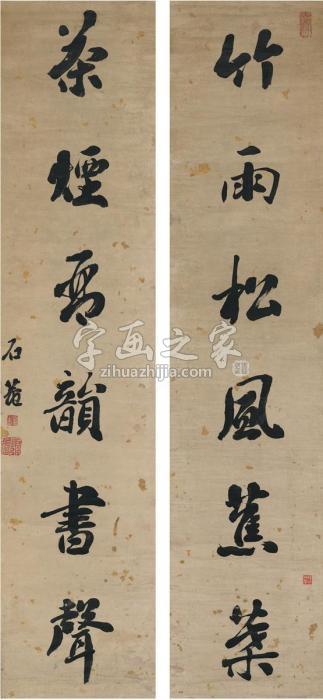 竹雨松風蕉葉
茶煙琴韻書聲
石菴
字画之家
zihuazhijia.com